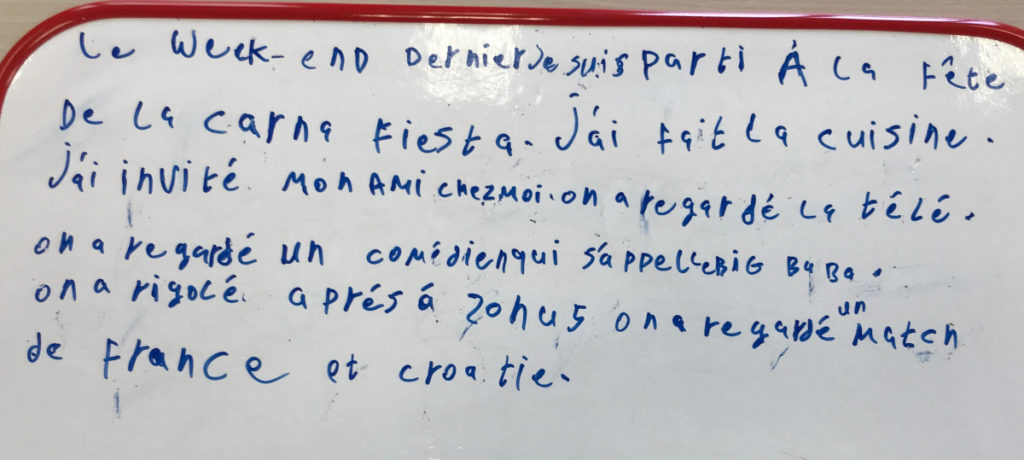 Le week-end DernierJe suis parti À La Fête
De La carna Fiesta. J'ai fait La cuisine.
J'ai invité mon AMi chezMoi. on a regardé La télé.
on a regardé un comédienqui s'appelleBiG BaBa.
on a rigolé. aprés á 20hu5 on a regardé un Match
de France et croatie.